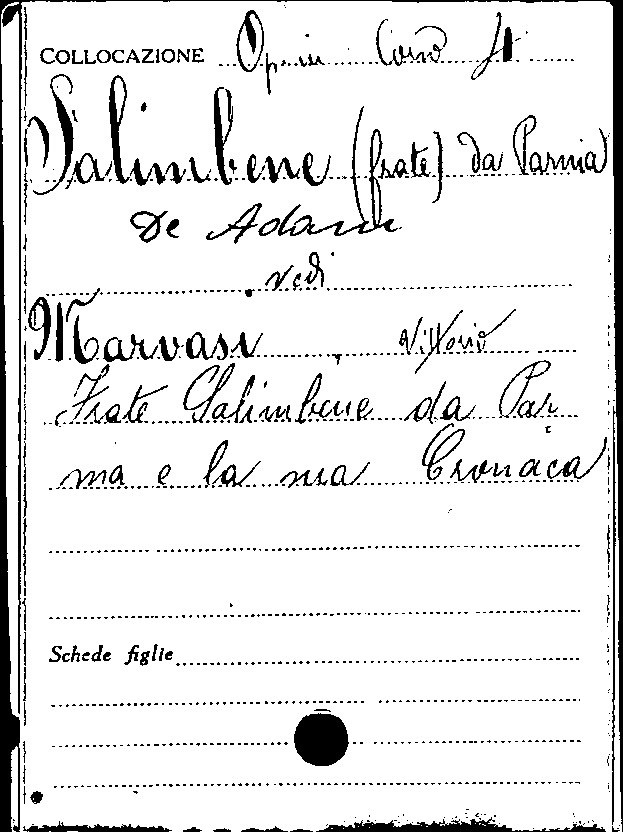 COLLOCAZIONE Opusc.
Salimbene (frate) da Parma
De Adam
vedi
Marvasi, Vittorio
Frate Salimbene da Par
ma e la sua Cronaca
Schede figlie